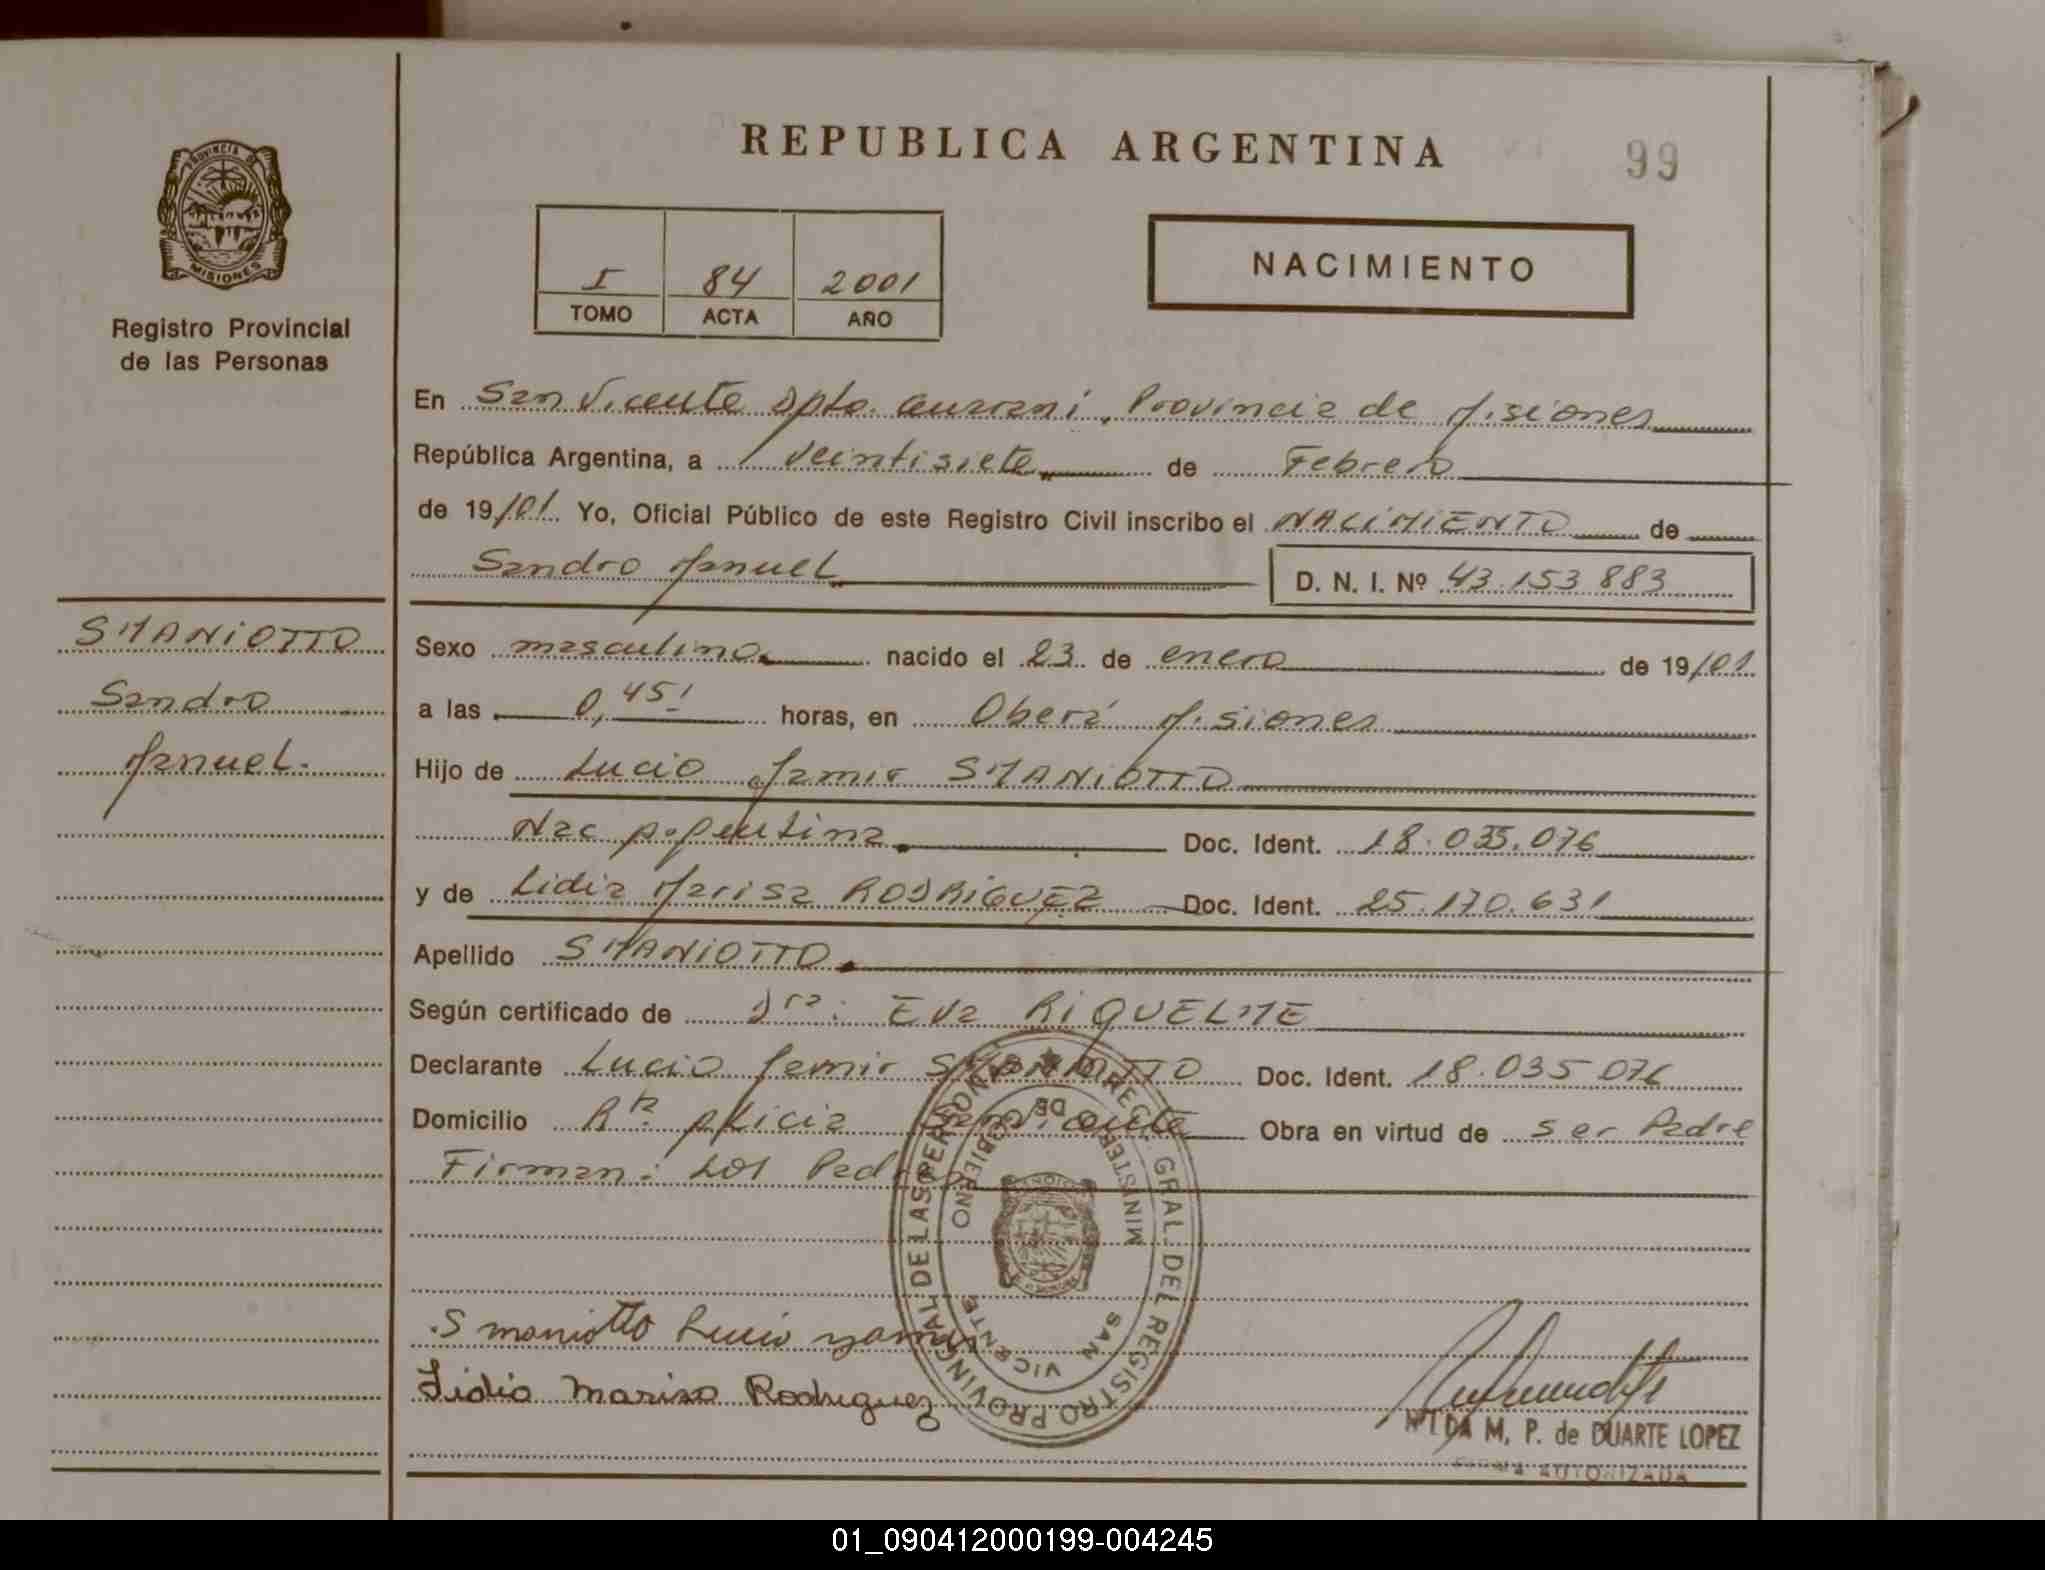 REPUBLICA ARGENTINA
99
PROVINCIA DE
MISIONES
Registro Provincial
de las Personas
I 84 2001
TOMO ACTA AÑO
NACIMIENTO
En San Vicente Dpto. Guarani, Provincia de Misiones
República Argentina, a veintisiete de Febrero
de 19/01 Yo, Oficial Público de este Registro Civil inscribo el NACIMIENTO de
Sandro Manuel D. N. I. Nº 43.153.883
SMANIOTTO
Sandro
Manuel.
Sexo masculino nacido el 23 de enero de 19/01
a las 0,45' horas, en Oberá Misiones
Hijo de Lucio Jamir SMANIOTTO
Nac Argentina. Doc. Ident. 18.035.076
y de Lidia Marisa RODRIGUEZ Doc. Ident. 25.170.631
Apellido SMANIOTTO.
Según certificado de Dra. Eva RIQUELME
Declarante Lucio Jamir SMANIOTTO Doc. Ident. 18.035.076
Domicilio Pto. Alicia San Vicente Obra en virtud de ser Padre
Firman: Los Padres
DIRECC. GRAL. DEL REGISTRO PROVINCIAL DE LAS PERSONAS
MINISTERIO DE GOBIERNO
SAN VICENTE
Smaniotto Lucio yamir
Lidia Marisa Rodriguez
M. P. de DUARTE LOPEZ
FIRMA AUTORIZADA
01_090412000199-004245